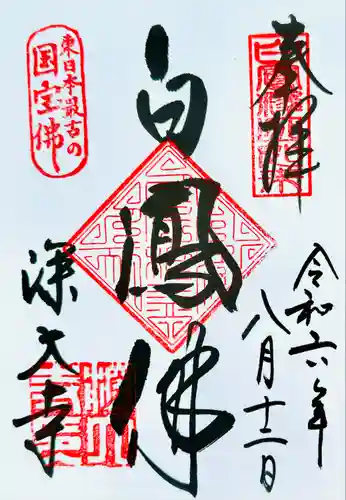 奉拝
令和六年
八月十二日
白鳳佛
東日本最古の
国宝佛
深大寺